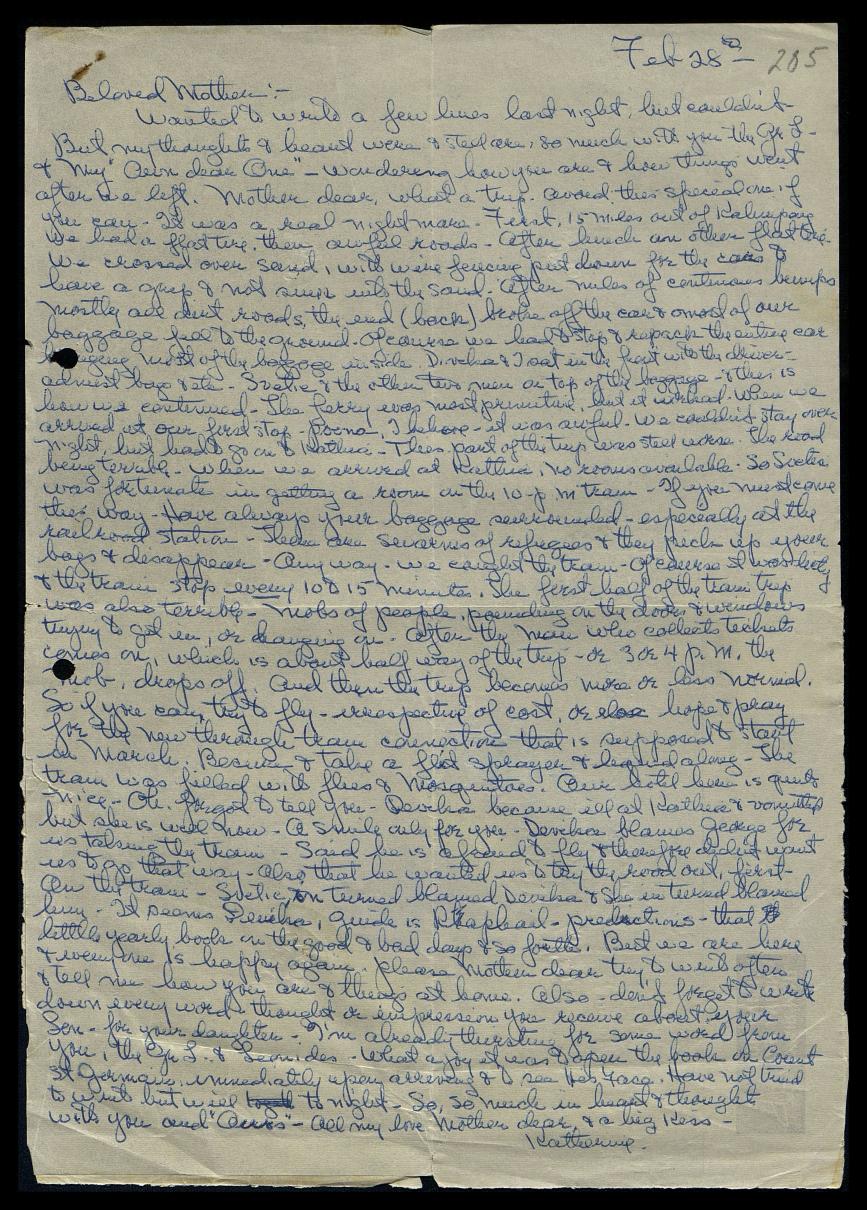 Feb 28th - 205
Beloved Mother:-
Wanted to write a few lines last night, but couldn't -
But my thoughts & heart were & still are, so much with you the Gr. L -
& "My" Own dear One" - wondering how you are & how things went
after we left. Mother dear, what a trip. avoid this special one if
you can - It was a real nightmare - First, 15 miles out of Kalimpong
we had a flat tire, then awful roads - After lunch an other flat tire -
We crossed over sand, with wire fencing put down for the cars to
have a grip & not sink into the sand. After miles of continuous bumps
mostly all dirt roads, the end (back) broke off the car & most of our
baggage fell to the ground. Of course we had to stop & repack the entire car
bringing most of the baggage inside. Devika & I sat in the front with the driver -
admist bags & etc - Svetic & the other two men on top of the baggage - & this is
how we continued - The ferry was most primitive, but it worked. When we
arrived at our first stop - I believe - it was awful. We couldn't stay over
night, but had to go on to - This part of the trip was still worse. The road
being terrible - When we arrived at , no rooms available. So Svetic
was fortunate in getting a room on the 10- p.m train - If you must come
this way - Have always your baggage surrounded - especially at the
railroad station - There are swarms of refugees & they pick up your
bags & disappear - Any way - we caught the train - Of course it was
& the train stop every 10 to 15 minutes. The first half of the train trip
was also terrible - Mobs of people, pounding on the doors & windows
trying to get in, or hanging on - After the man who collects tickets
comes on, which is about half way of the trip - or 3 or 4 p.m. the
mob, drops off. And then the trip becomes more or less normal.
So if you can, try to fly - irrespecting of cost, or else hope & pray
for the new through train connection that is supposed to start
in March. Be sure & take a flit sprayer & liquid along - The
train was filled with flies & Mosquitoes. Our hotel here is quite
nice - Oh. forgot to tell you - Devika became ill at & vomited
but she is well now - A Smile only for you - Devika blames George for
us taking the train - Said he is afraid to fly & therefore didn't want
us to go that way - Also that he wanted us to try the road out, first -
On the train - Svetic, in turned blamed Devika & She in turned blamed
him - It seems Devika, guide is Rhaphail - predictions - that
little yearly book on the good & bad days & so forth. Best we are here
& everyone is happy again. please Mother dear try to write often
& tell me how you are & things at home. Also - don't forget to write
down every word - thought or impression you receive about your
Son - for your daughter - I'm already thirsting for some word from
you, the Gr. L. & Leonidas - What a joy it was to open the book on Count
St Germain, immediately upon arriving & to see His Face. Have not tried
to write but will to night - So, so much in heart & thoughts
with you and "Ours" - All my love Mother dear, & a big Kiss -
Katherine.